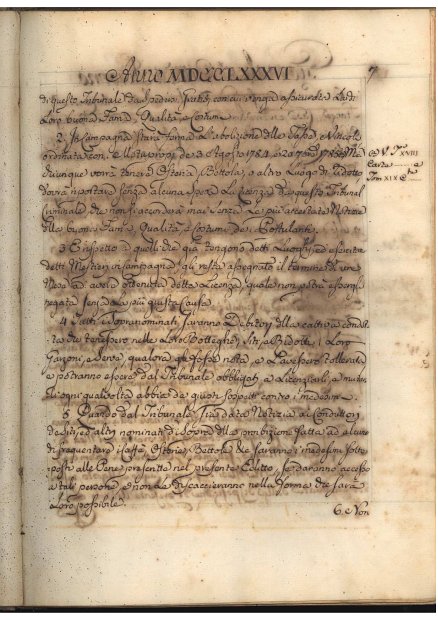 Anno MDCCLXXXVI. 7
di questo Tribunale da spedirsi Gratis, con cui venga assicurata la di
loro buona Fama, Qualità e Costumi
2. In Campagna starà ferma l'abolizione delle
ordinata con de 23 Agosto 1784, e
chiunque vorrà tener Osteria, Bettola, o altro Luogo di ridotto
dovrà riportare senza alcuna spesa la licenza di questo Tribunal
Criminale che non si accorderà mai senza le più accertate Notizie
della buona Fama, Qualità e Costumi dei Postulanti.
3. Rispetto a quelli che già tengono detti Luoghi, ed esercitano
detti Mestieri in Campagna gli resta assegnato il termine di un
Mese ad aver ottenuta detta Licenza, quale non potrà essergli
negata senza la più giusta Causa.
4. Tutti i sopranominati saranno Debitori della cattiva condotta
che tenessero nelle loro Botteghe, Siti, e Ridotti, i loro
Garzoni, e Servi, qualora gli fosse nota, e l'avessero tollerata
e potranno essere dal Tribunale obbligati a licenziarli, e mutarli
ogni qual volta abbia de giusti sospetti contro i medesimi.
5. Quando dal Tribunale sia data Notizia ai Conduttori
ed altri nominati di sopra della proibizione fatta ad alcuno
di frequentare i Caffè, Osterie, Bettole &c. saranno i medesimi sottoposti
alle Pene prescritte nel presente Editto, se daranno accesso
a tali persone, e non le discacceranno nella forma che sarà
loro possibile.
6. Non
V. T. XVIII
Carte
Tom XIX C.